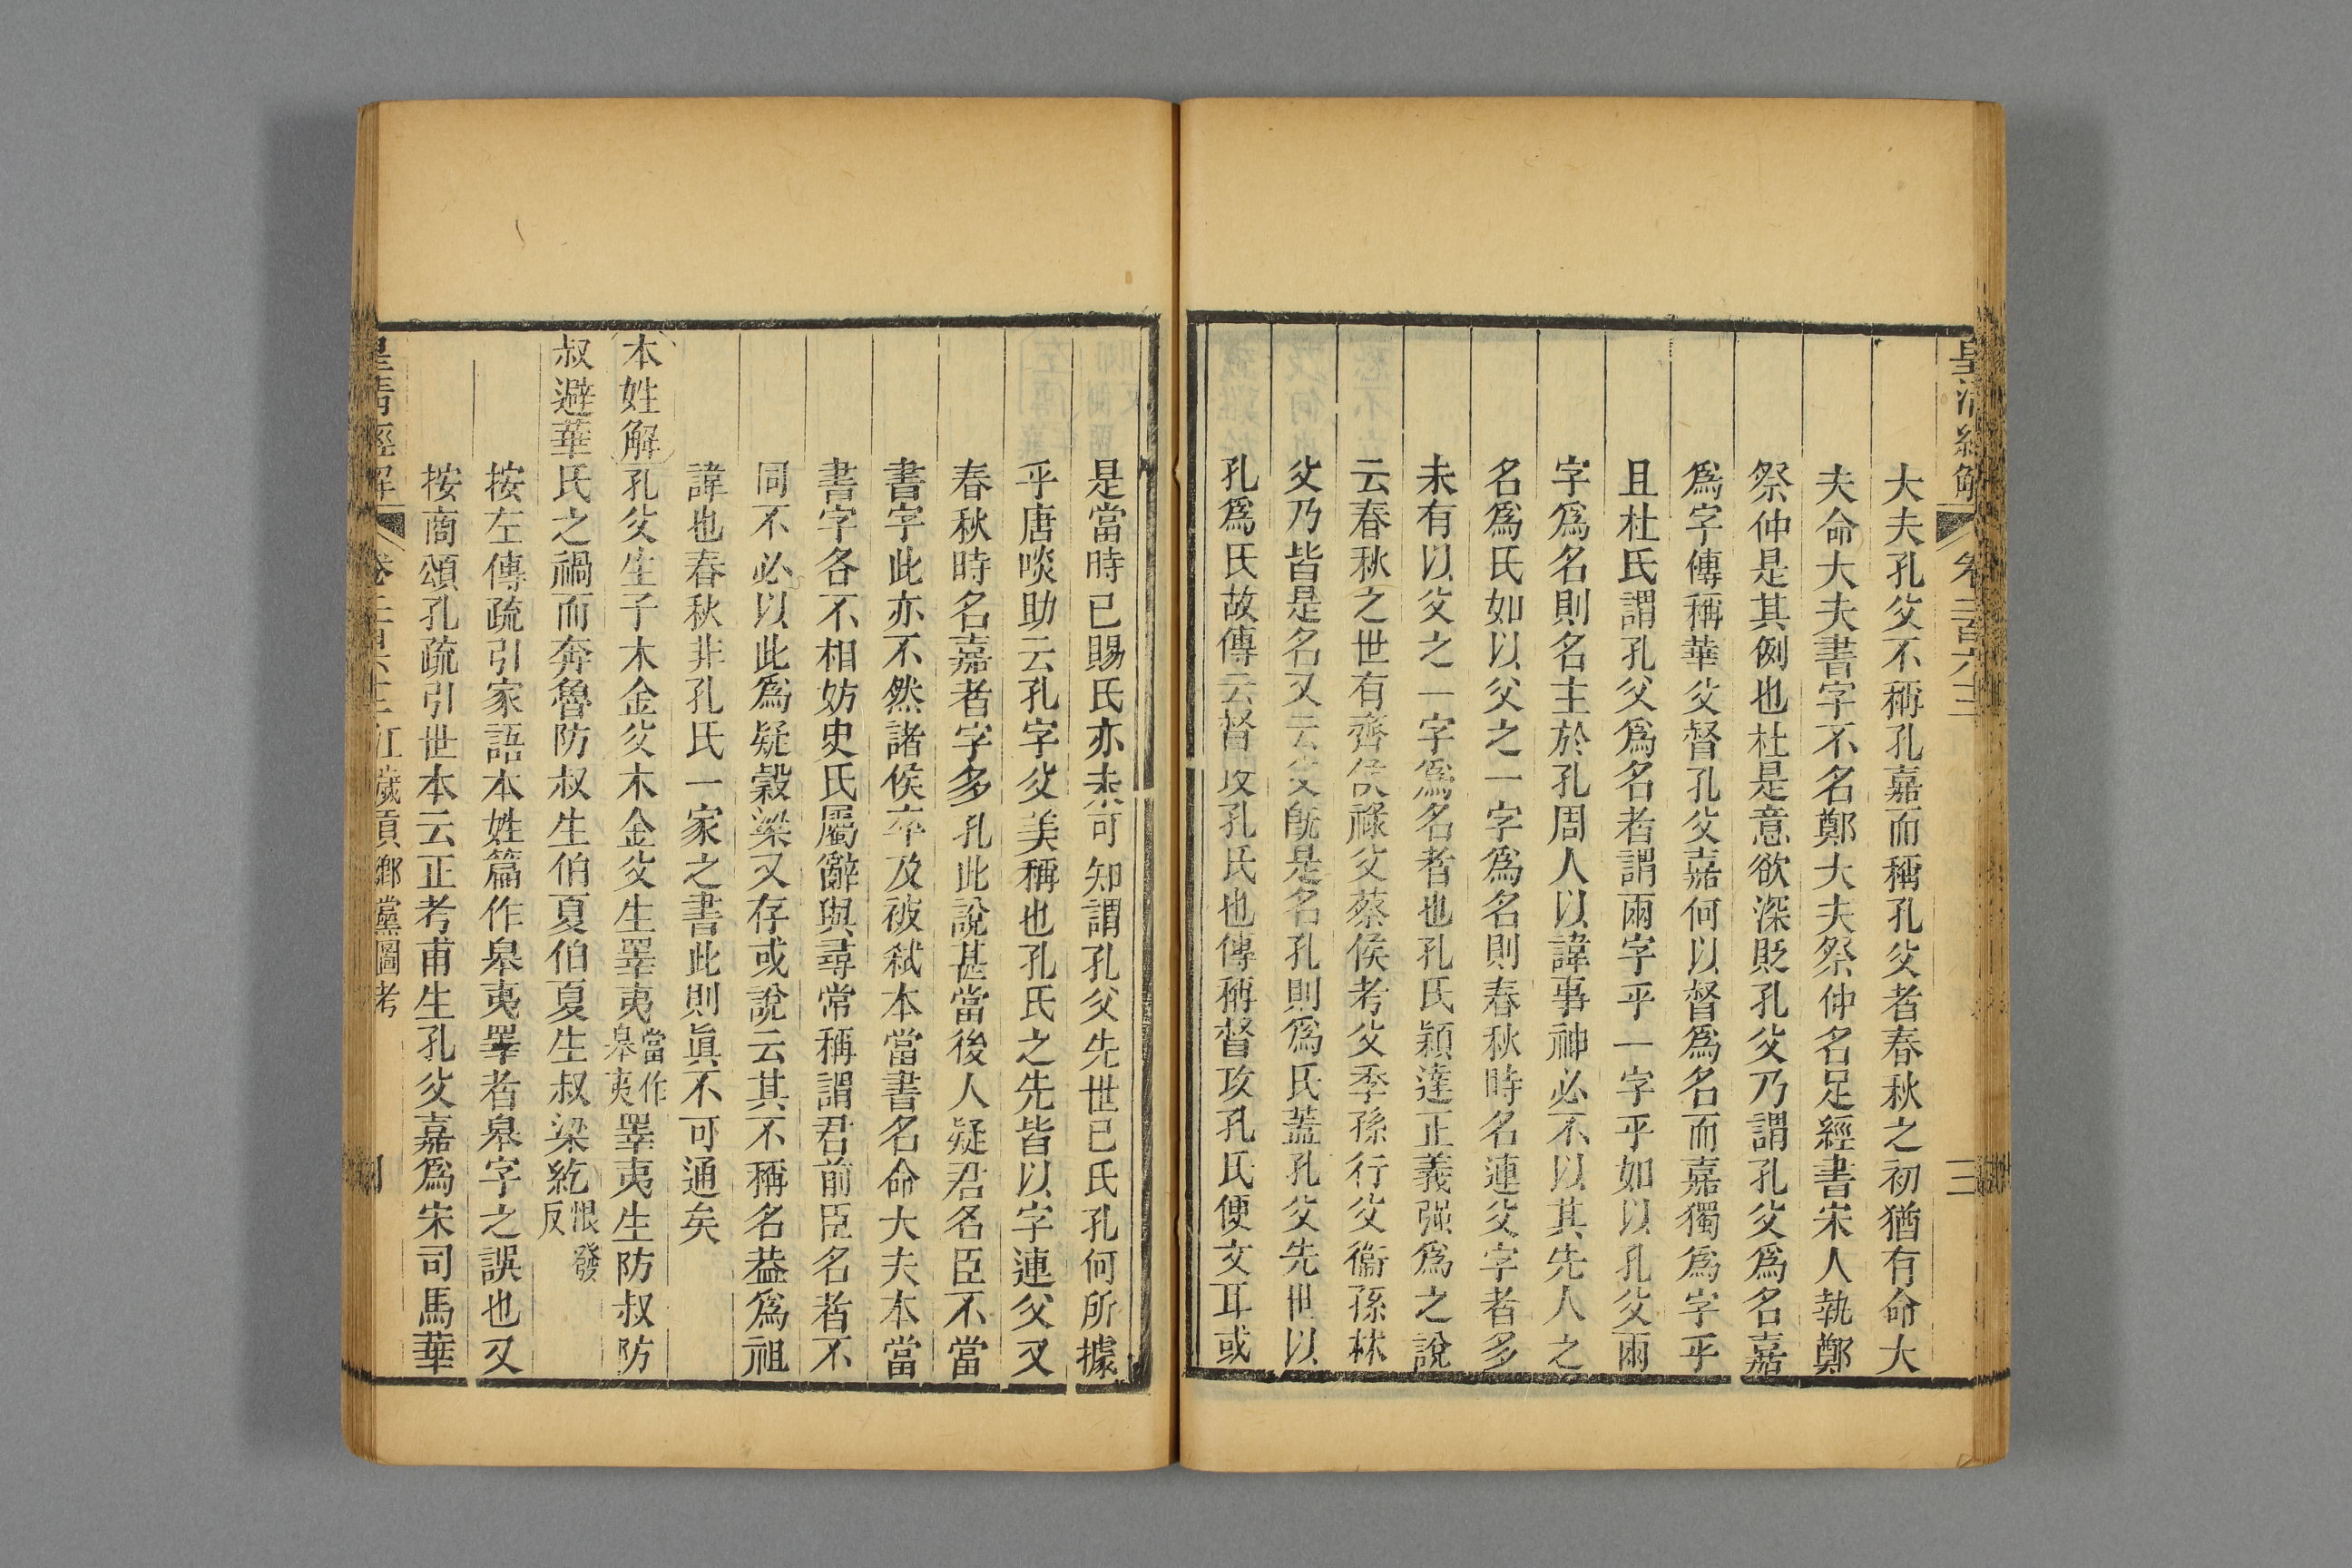 皇清經解 卷二百六十二 三
大夫孔父不稱孔嘉而稱孔父者春秋之初猶有命大
夫命大夫書字不名鄭大夫祭仲名足經書宋人執鄭
祭仲是其例也杜是意欲深貶孔父乃謂孔父爲名嘉
爲字傳稱華父督孔父嘉何以督爲名而嘉獨爲字乎
且杜氏謂孔父爲名者謂兩字乎一字乎如以孔父兩
字爲名則名主於孔周人以諱事神必不以其先人之
名爲氏如以父之一字爲名則春秋時名連父字者多
未有以父之一字爲名者也孔氏穎達正義强爲之說
云春秋之世有齊侯祿父蔡侯考父季孫行父衞孫林
父乃皆是名又云父旣是名孔則爲氏蓋孔父先世以
孔爲氏故傳云督攻孔氏也傳稱督攻孔氏便文耳或
是當時已賜氏亦未可知謂孔父先世已氏孔何所據
乎唐啖助云孔字父美稱也孔氏之先皆以字連父又
春秋時名嘉者字多孔此說甚當後人疑君名臣不當
書字此亦不然諸侯卒及被弑本當書名命大夫本當
書字各不相妨史氏屬辭與尋常稱謂君前臣名者不
同不必以此爲疑穀梁又存或說云其不稱名葢爲祖
諱也春秋非孔氏一家之書此則眞不可通矣
本姓解孔父生子木金父木金父生睪夷當作皋夷睪夷生防叔防
叔避華氏之禍而奔魯防叔生伯夏伯夏生叔梁紇恨發反
按左傳疏引家語本姓篇作皋夷睪者皋字之誤也又
按商頌孔疏引世本云正考甫生孔父嘉爲宋司馬華
皇清經解 卷 江歲貢鄉黨圖考